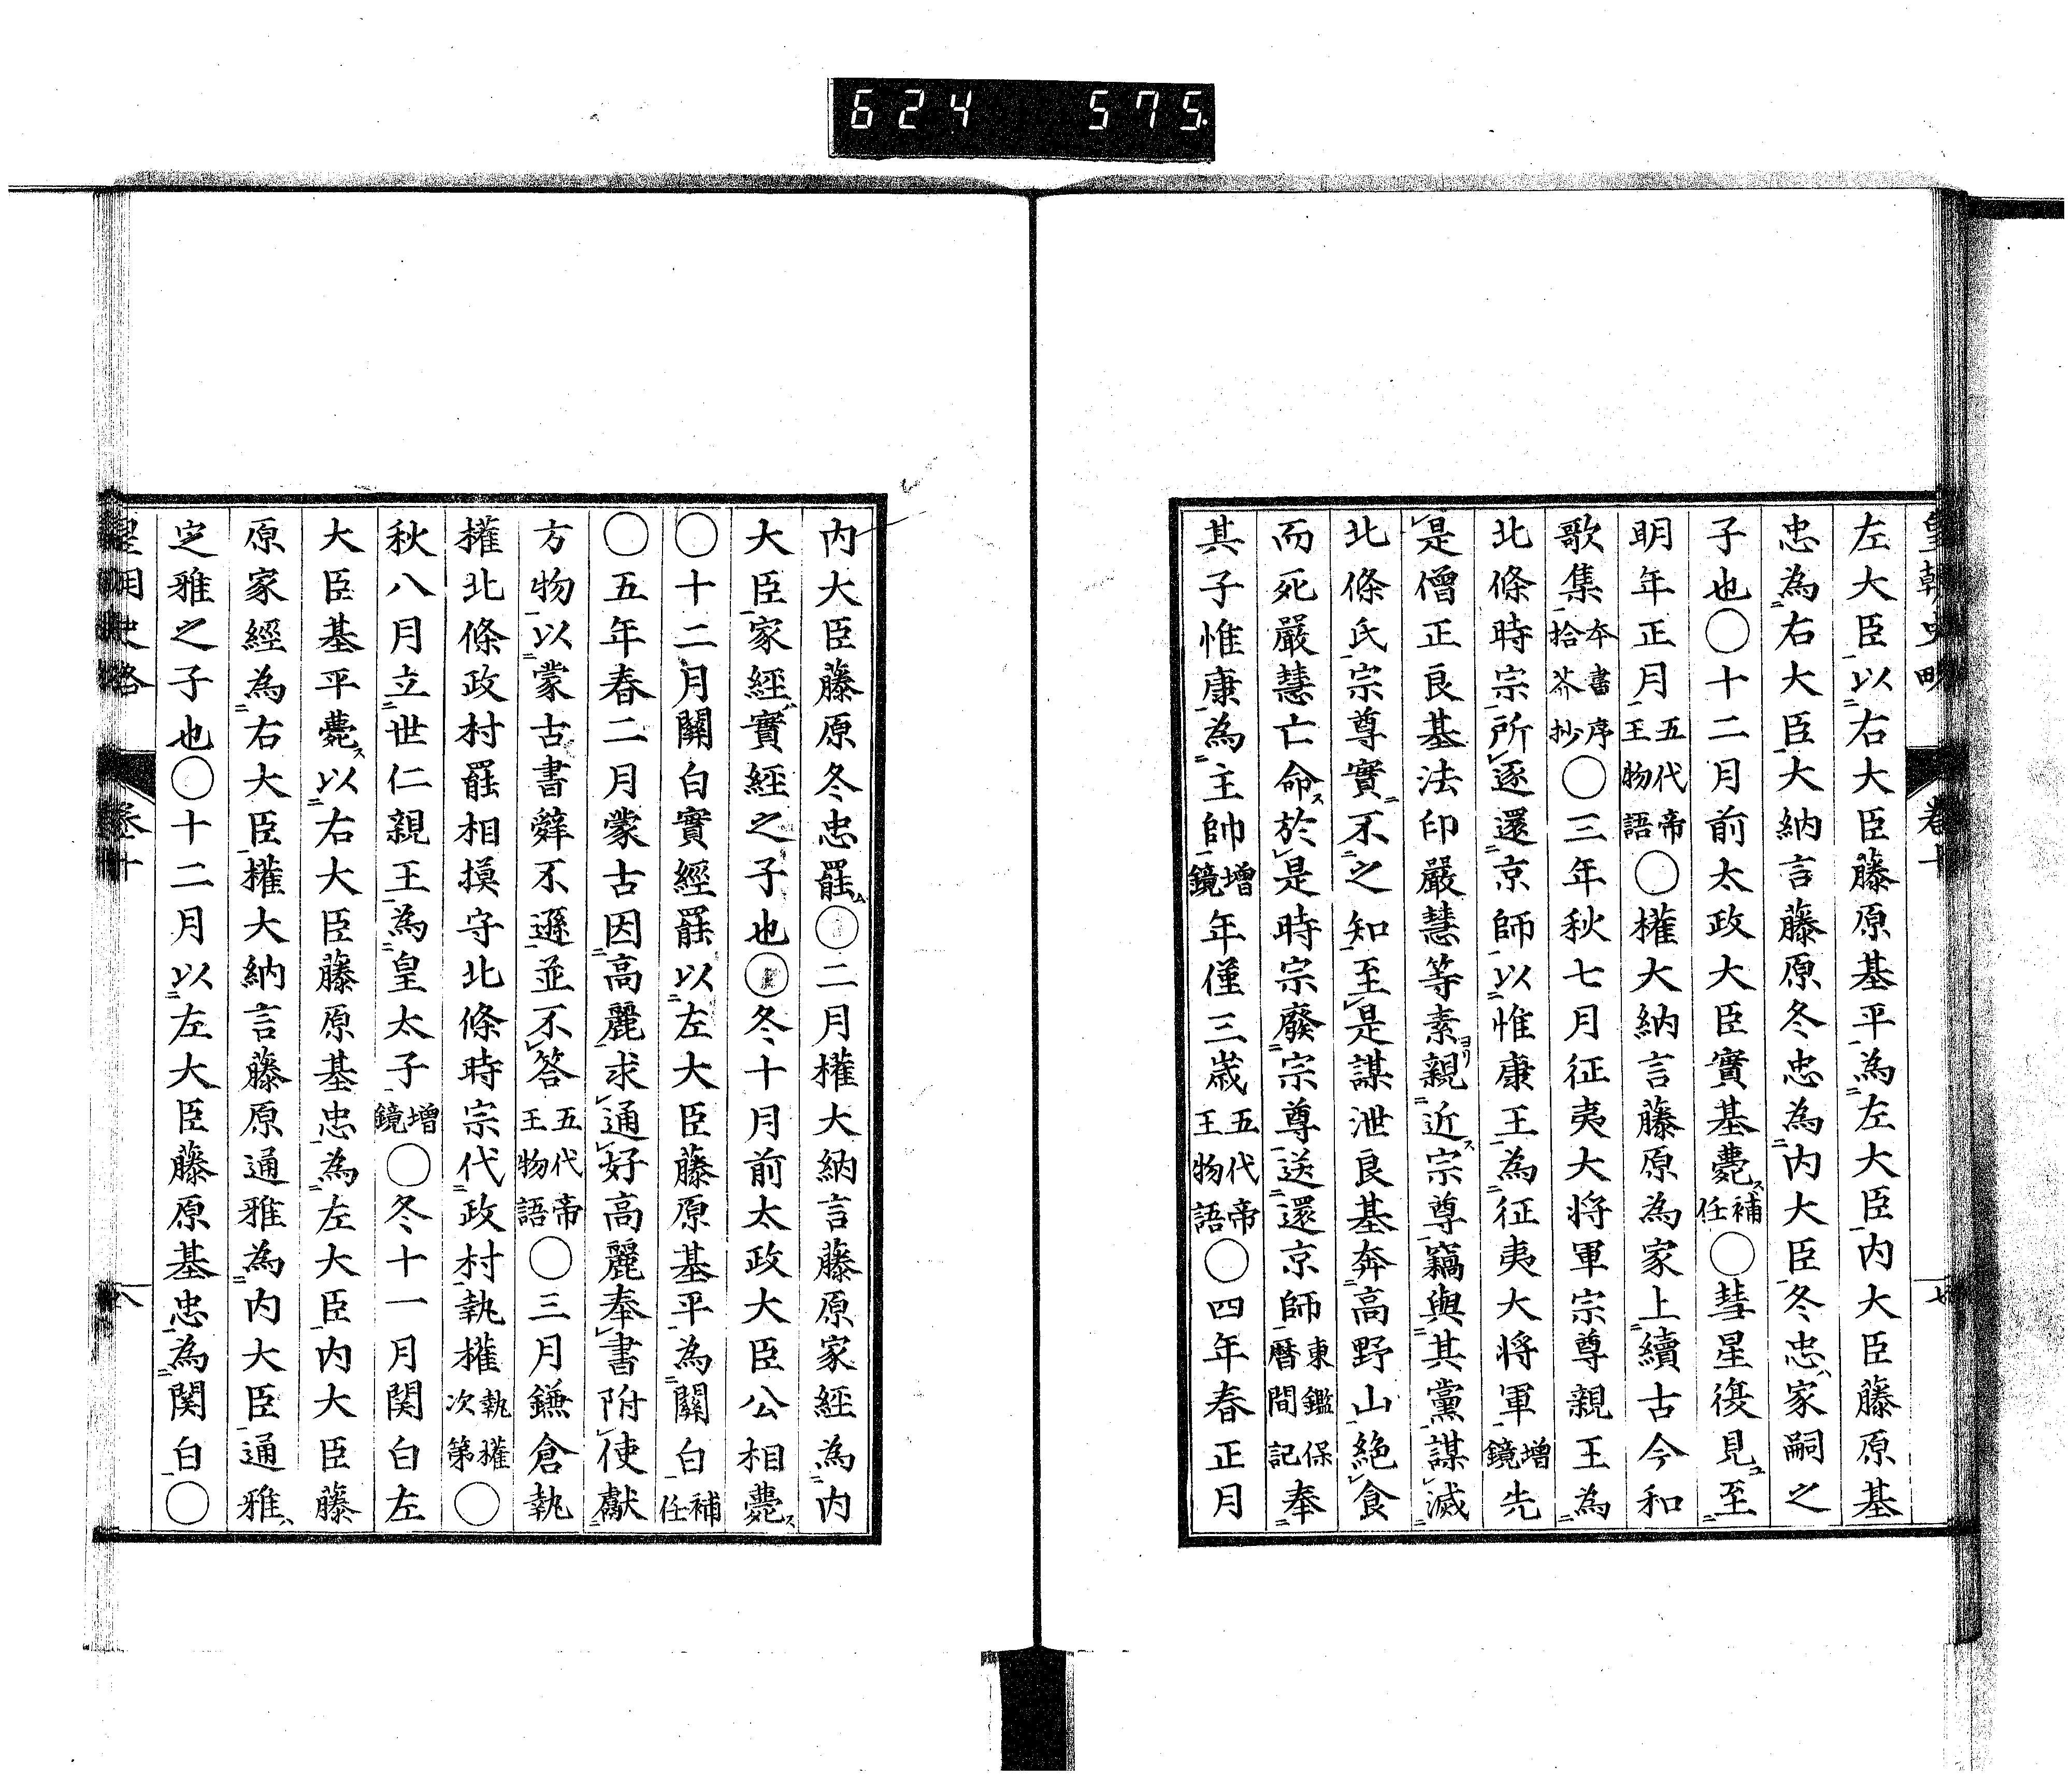 624 575.
皇朝史略 卷十 十七
左大臣以右大臣藤原基平為左大臣內大臣藤原基
忠為右大臣大納言藤原冬忠為內大臣冬忠家嗣之
子也〇十二月前太政大臣實基薨補任〇彗星復見至
明年正月五代帝王物語〇權大納言藤原為家上續古今和
歌集本書序拾芥抄〇三年秋七月征夷大將軍宗尊親王為
北條時宗所逐還京師以惟康王為征夷大將軍增鏡先
是僧正良基法印嚴慧等素親近宗尊竊與其黨謀滅
北條氏宗尊實不之知至是謀泄良基奔高野山絕食
而死嚴慧亡命於是時宗廢宗尊送還京師東鑑保曆間記奉
其子惟康為主帥增鏡年僅三歲五代帝王物語〇四年春正月
內大臣藤原冬忠罷〇二月權大納言藤原家經為內
大臣家經實經之子也〇冬十月前太政大臣公相薨
〇十二月關白實經罷以左大臣藤原基平為關白補任
〇五年春二月蒙古因高麗求通好高麗奉書附使獻
方物以蒙古書辭不遜並不答五代帝王物語〇三月鎌倉執
權北條政村罷相摸守北條時宗代政村執權執權次第〇
秋八月立世仁親王為皇太子增鏡〇冬十一月関白左
大臣基平薨以右大臣藤原基忠為左大臣內大臣藤
原家經為右大臣權大納言藤原通雅為內大臣通雅
定雅之子也〇十二月以左大臣藤原基忠為関白〇
皇朝史略 卷十 八